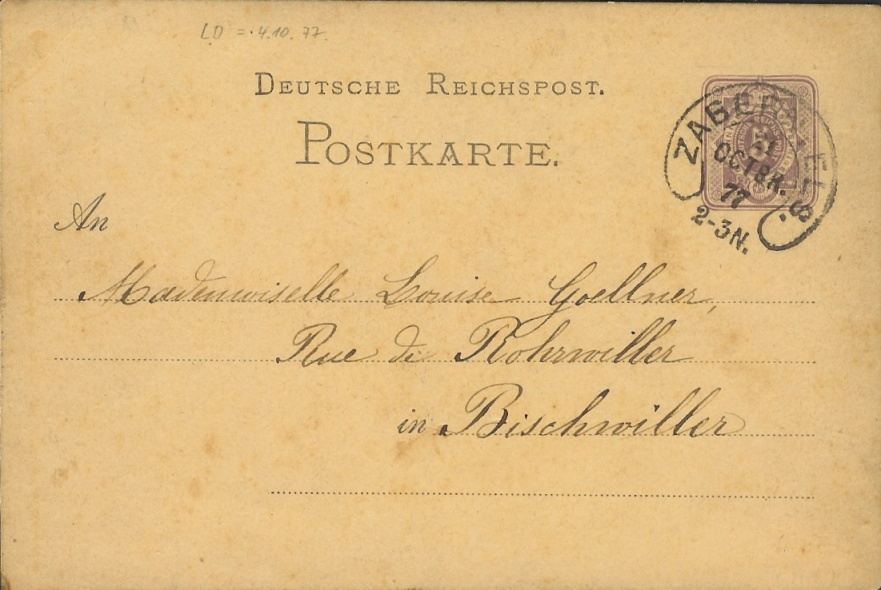 LD = · 4.10. 77.
DEUTSCHE REICHSPOST.
POSTKARTE.
ZABERN i. ELS.
OCTBR.
77
2-3N.
5
An
Mademoiselle Louise Goellner,
Rue de Rohrwiller
in Bischwiller